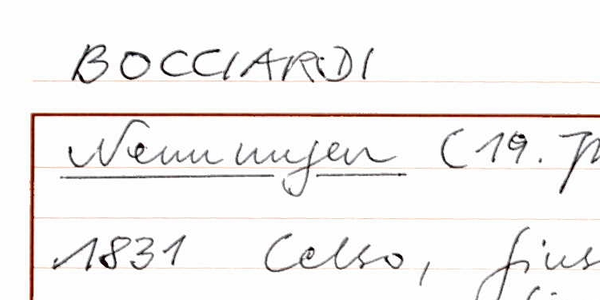 BOCCIARDI
Nennungen (19. J
1831 Celso, Gius